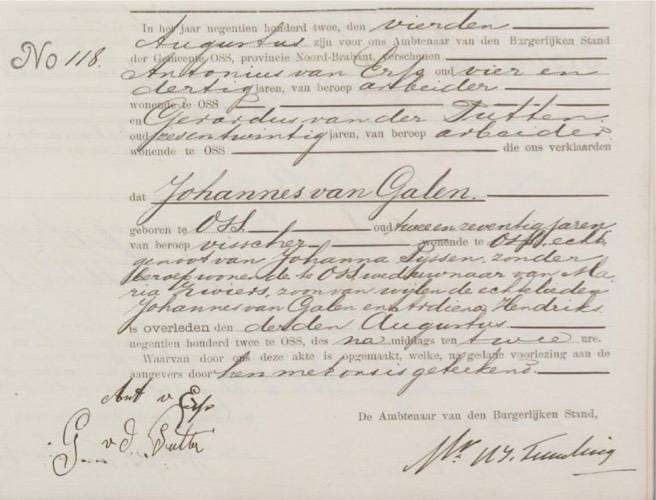 No 118.
In het jaar negentien honderd twee, den vierden
Augustus zijn voor ons Ambtenaar van den Burgerlijken Stand
der Gemeente OSS, provincie Noord-Brabant, verschenen
Antonius van Erp oud vier en
dertig jaren, van beroep arbeider
wonende te OSS
en Gerardus van der Putten
oud zesentwintig jaren, van beroep arbeider
wonende te OSS die ons verklaarden
dat Johannes van Galen.
geboren te OSS. oud twee en zeventig jaren
van beroep visscher wonende te Oss, echt
genoot van Johanna Pijssen, zonder
beroep wonende te Oss weduwnaar van Ma
ria Zwiers, zoon van wijlen de echtelieden
Johannes van Galen en Ardiena Hendriks.
is overleden den derden Augustus
negentien honderd twee te OSS, des na middags ten twee ure.
Waarvan door ons deze akte is opgemaakt, welke, na gedane voorlezing aan de
aangevers door hen met ons is geteekend.
Ant v Erp
G v d Putten
De Ambtenaar van den Burgerlijken Stand,